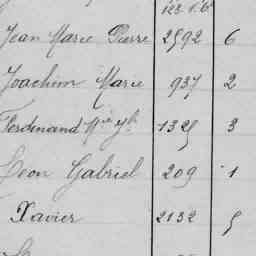 Jean Marie Pierre 2592 6
Joachim Marie 937 2
Ferdinand Mie Jh 1325 3
Leon Gabriel 209 1
Xavier 2132 5